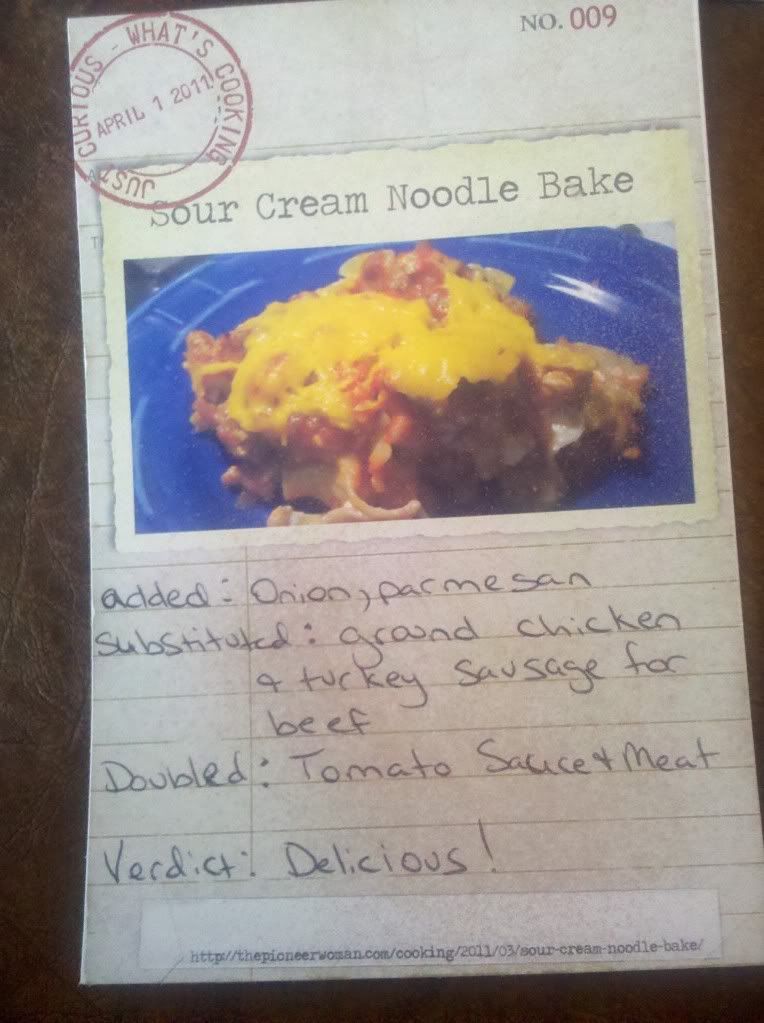 NO. 009
JUST CURIOUS - WHAT'S COOKING
APRIL 1 2011
Sour Cream Noodle Bake
added: Onion, parmesan
Substituted: ground chicken
& turkey sausage for
beef
Doubled: Tomato Sauce & Meat
Verdict: Delicious!
http://thepioneerwoman.com/cooking/2011/03/sour-cream-noodle-bake/